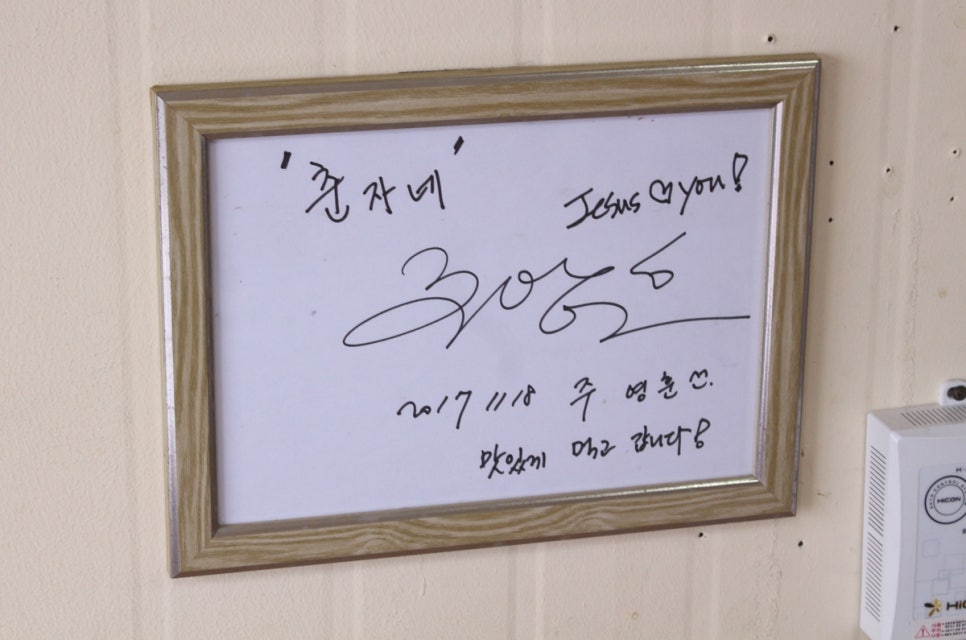 '춘자네'
Jesus ♡ you!
2017 11 18 주 영훈 ♡.
맛있게 먹고 갑니다
HiCON